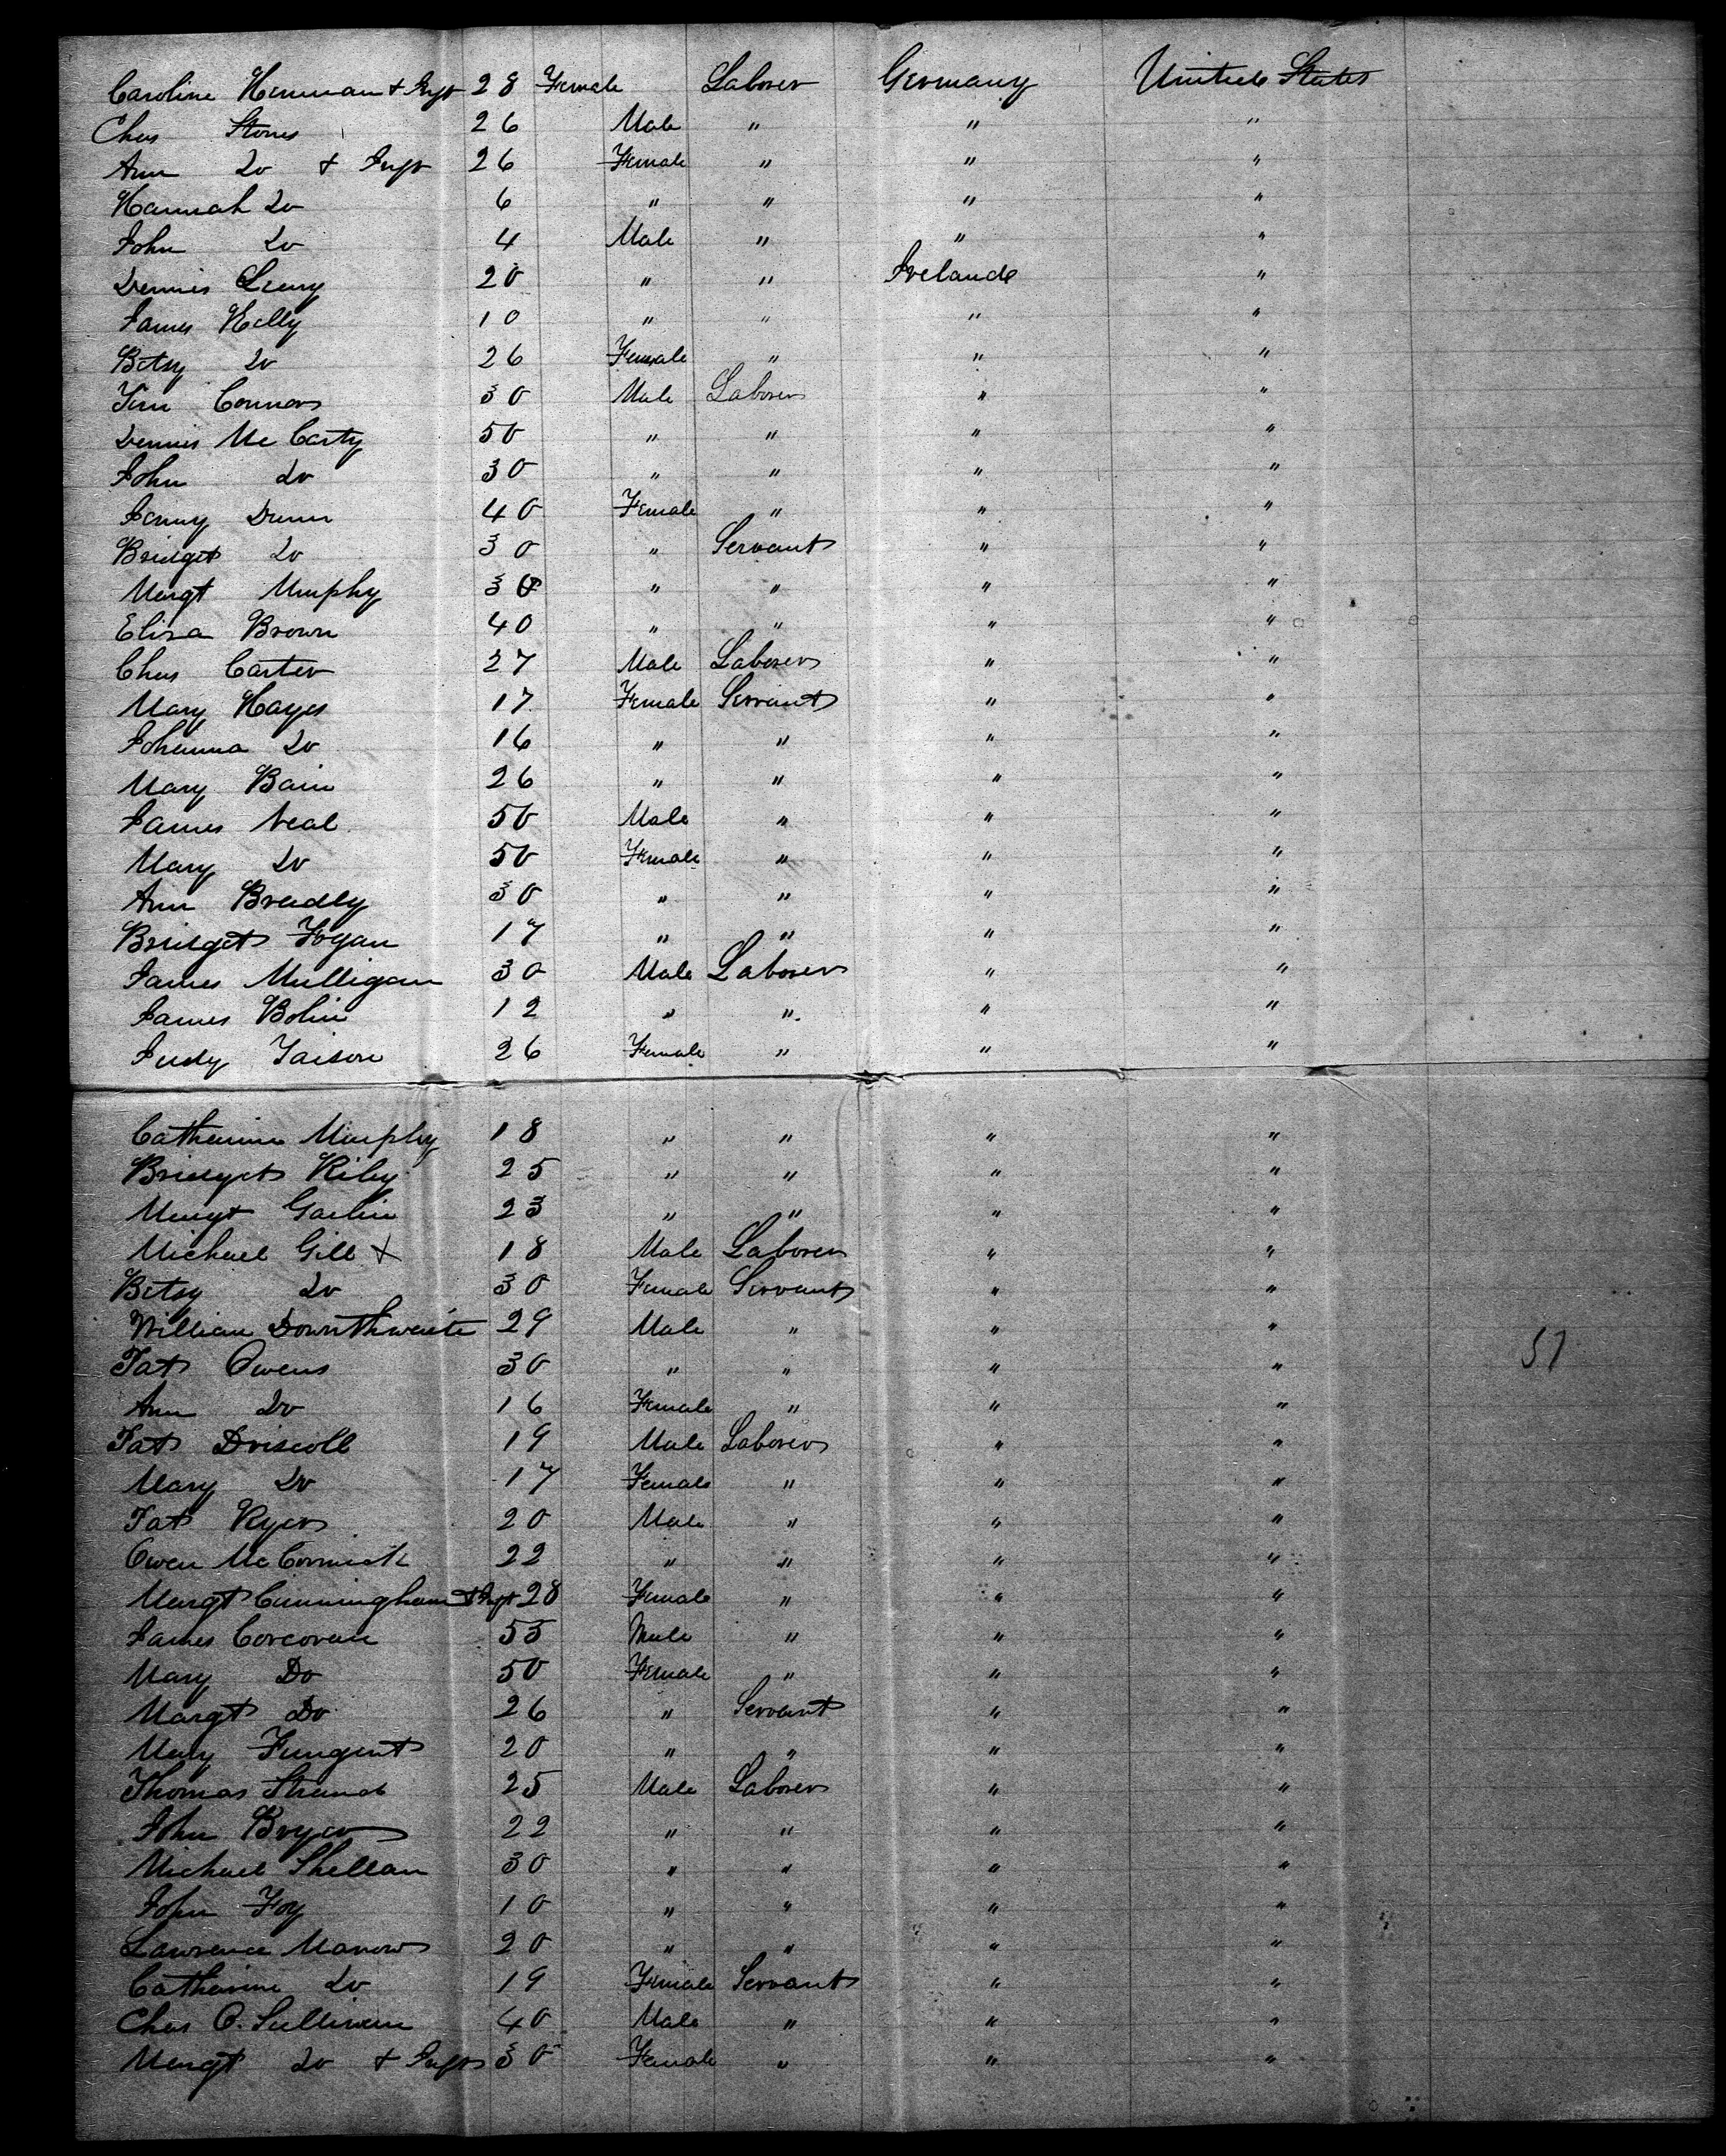 Caroline Herman + Inft 28 Female Laborer Germany United States
Chas Stones 26 Male " " "
Ann Do + Inft 26 Female " " "
Hannah Do 6 " " " "
John Do 4 Male " " "
Dennis Leary 20 " " Ireland "
James Kelly 10 " " " "
Betsy Do 26 Female " " "
Tim Connors 30 Male Laborer " "
Dennis McCarty 50 " " " "
John do 30 " " " "
Jenny Dunn 40 Female " " "
Bridget Do 30 " Servant " "
Margt Murphy 30 " " " "
Eliza Brown 40 " " " "
Chas Carter 27 Male Laborer " "
Mary Hayes 17 Female Servant " "
Johanna Do 16 " " " "
Mary Bain 26 " " " "
James Neal 50 Male " " "
Mary Do 50 Female " " "
Ann Bradly 30 " " " "
Bridget Fogan 17 " " " "
James Mulligan 30 Male Laborer " "
James Bolin 12 " " " "
Judy 26 Female " " "
Catharine Murphy 18 " " " "
Bridget Riley 25 " " " "
Margt 23 " " " "
Michael Gill + 18 Male Laborer " "
Betsy Do 30 Female Servant " "
William Downthwaite 29 Male " " "
Pat Owens 30 " " " "
Ann Do 16 Female " " "
Pat Driscoll 19 Male Laborer " "
Mary Do 17 Female " " "
Pat 20 Male " " "
Owen McCormick 22 " " " "
Margt Cunningham + Inft 28 Female " " "
James Corcoran 55 Male " " "
Mary Do 50 Female " " "
Margt Do 26 " Servant " "
Mary 20 " " " "
Thomas 25 Male Laborer " "
John 22 " " " "
Michael 30 " " " "
John Foy 10 " " " "
Lawrence Marrow 20 " " " "
Catharine Do 19 Female Servant " "
Chas O. Sullivan 40 Male " " "
Margt Do + Inft 30 Female " " "